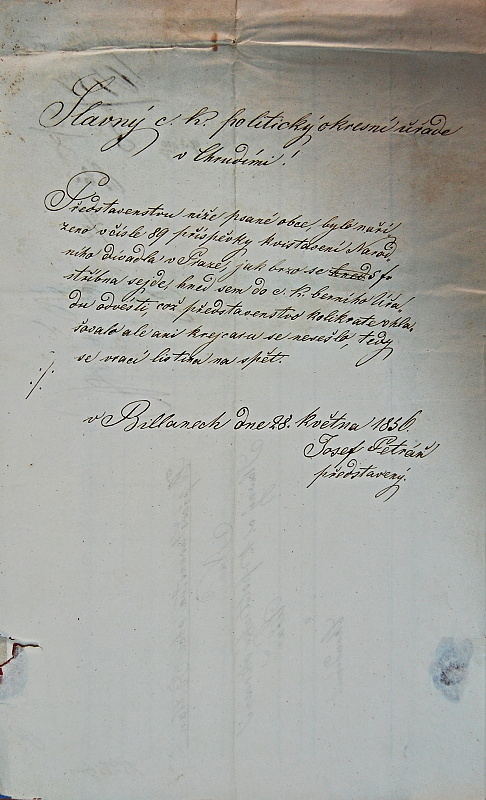 Slavný c. k. politický okresní úřade
v Chrudimi!
Představenstvu níže psané obce, bylo naří-
zeno v čísle 89 příspěvky kvistavení Národ-
ního divadla v Praze, jak brzo se 5 fr
stříbra sejde, hned sem do c. k. berního Úřa-
du odvésti, což představenstvo kolikráte ohla-
šovalo ale ani krejcaru se nesešlo, tedy
se vrací listina na spět.
v Billanech dne 28. května 1856.
Josef Petráň
představený.